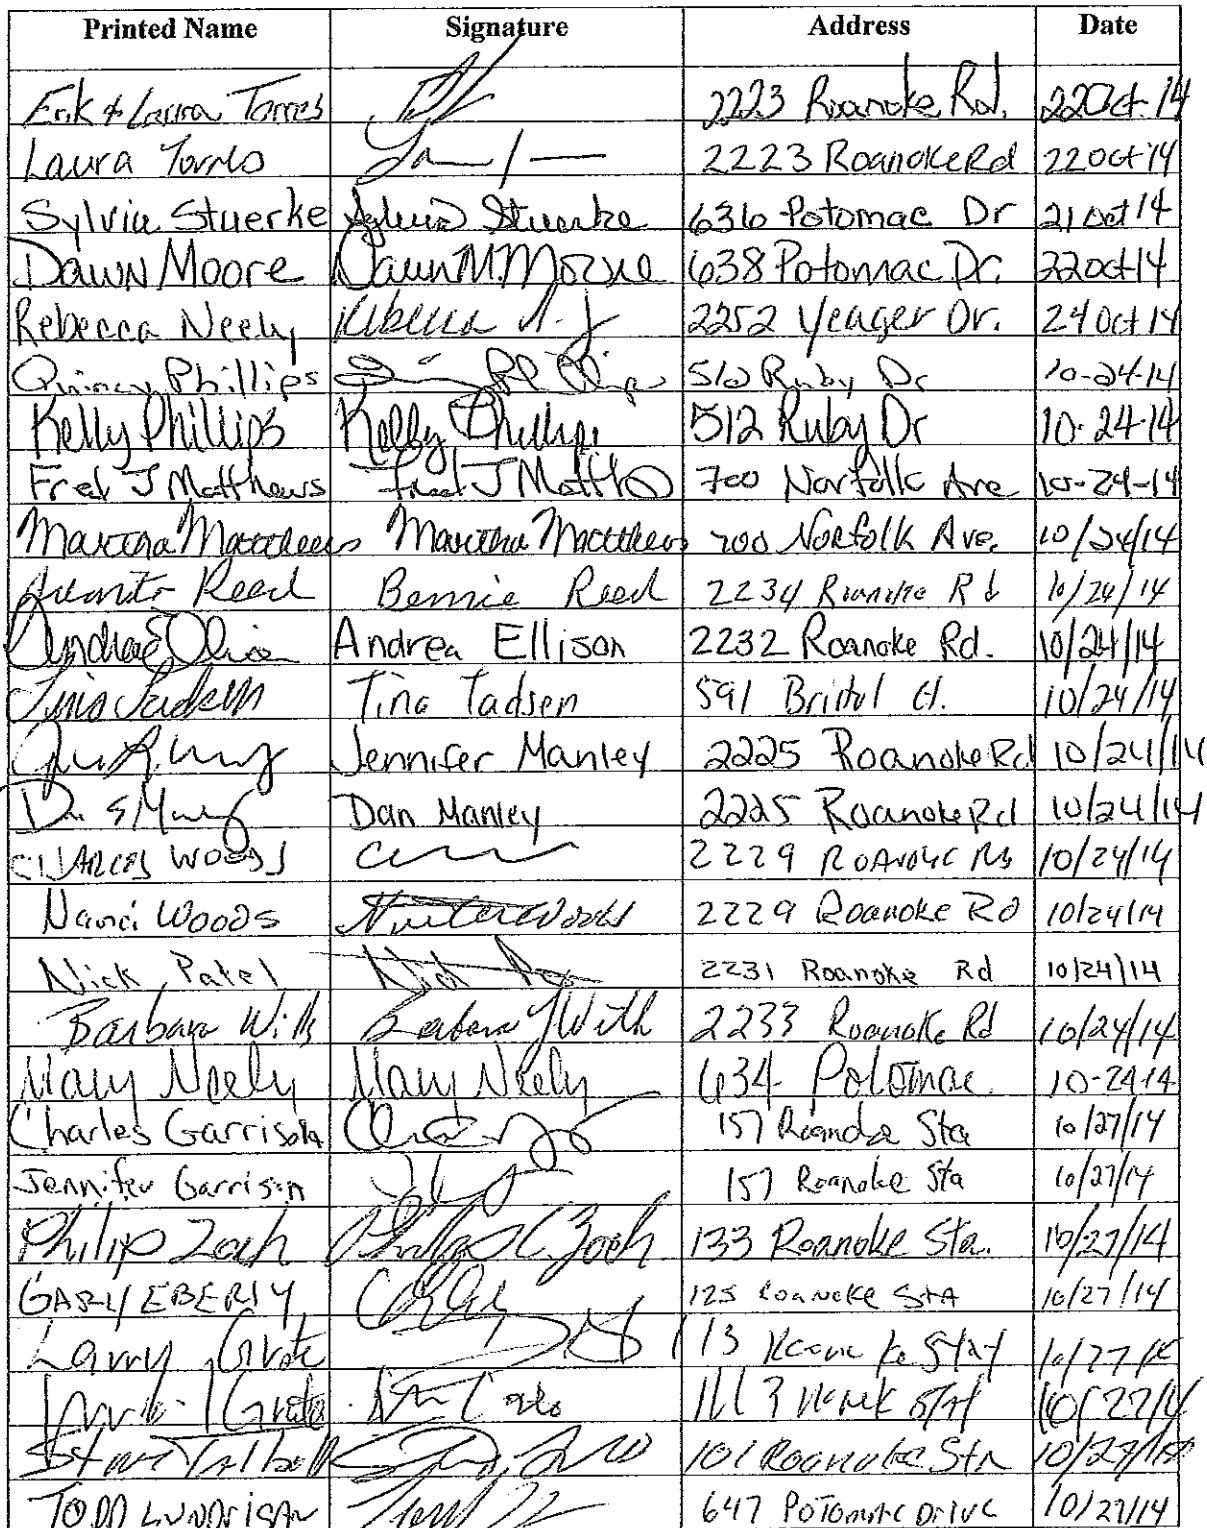 Printed Name Signature Address Date
Erik & Laura Torres 2223 Roanoke Rd. 22 Oct. 14
Laura Torres 2223 Roanoke Rd 22 Oct 14
Sylvia Stuerke Sylvia Stuerke 636 Potomac Dr 21 Oct 14
Dawn Moore Dawn M. Moore 638 Potomac Dr. 22 Oct 14
Rebecca Neely Rebecca 2252 Yeager Dr. 24 Oct 14
Quincy Phillips 512 Ruby Dr 10-24-14
Kelly Phillips Kelly Phillips 512 Ruby Dr 10-24-14
Fred J Matthews Fred J 700 Norfolk Ave 10-24-14
Martha Matthews Martha Matthews 700 Norfolk Ave. 10/24/14
Reed Bernie Reed 2234 Roanoke Rd 10/24/14
Andrea Ellison 2232 Roanoke Rd. 10/24/14
Tina Tadsen Tina Tadsen 591 Bristol Ct. 10/24/14
Jennifer Manley 2225 Roanoke Rd 10/24/14
Dan Manley 2225 Roanoke Rd 10/24/14
CHARLES WOODS 2229 Roanoke Rd 10/24/14
Nanci Woods Woods 2229 Roanoke Rd 10/24/14
Nick Patel Nick 2231 Roanoke Rd 10/24/14
Barbara Barbara 2233 Roanoke Rd 10/24/14
Mary Neely Mary Neely 634 Potomac 10-24-14
Charles Garrison 157 Roanoke Sta 10/27/14
Jennifer Garrison 157 Roanoke Sta 10/27/14
Philip Zoch Zoch 133 Roanoke Sta. 10/27/14
GARY EBERLY 125 Roanoke StA 10/27/14
Larry Grote 113
10/27/14
Steve Talbott 101 Roanoke Sta 10/27/14
TODD LUNDRIGAN 647 POTOMAC DRIVE 10/27/14